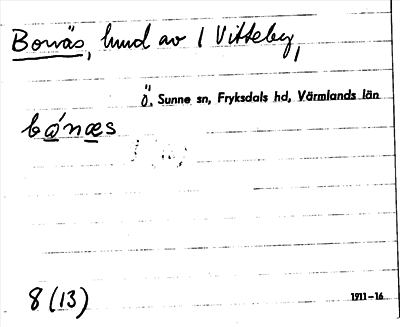 Bonäs, hmd av 1 Vitteby,
Ö. Sunne sn, Fryksdals hd, Värmlands län
bǿnæs
8 (13)
1911-16